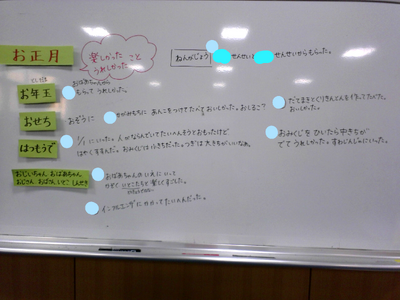 お正月
楽しかった こと
うれしかった
ねんがじょう
せんせいと
せんせいからもらった。
としだま
お年玉
おばあちゃんから
もらって うれしかった。
おせち
おぞうに
かがみもちに あんこをつけてたべる おいしかった。おしるこ
だてまきとくりきんとんを
おいしかった。
はつもうで
1/1 にいった。人がならんでいて たいへんそうとおもったけど
はやくすすんだ。おみくじは小きちだった。つぎは大きちがいいなぁ。
おみくじを ひいたら中きちが
でて うれしかった。
おじいちゃん おばあちゃん
おじさん おばさん いとこ しんせき
おばあちゃんの いえに いって
かぞく いとこたちと 楽しくすごした。
インフルエンザに かかって たいへんだった。